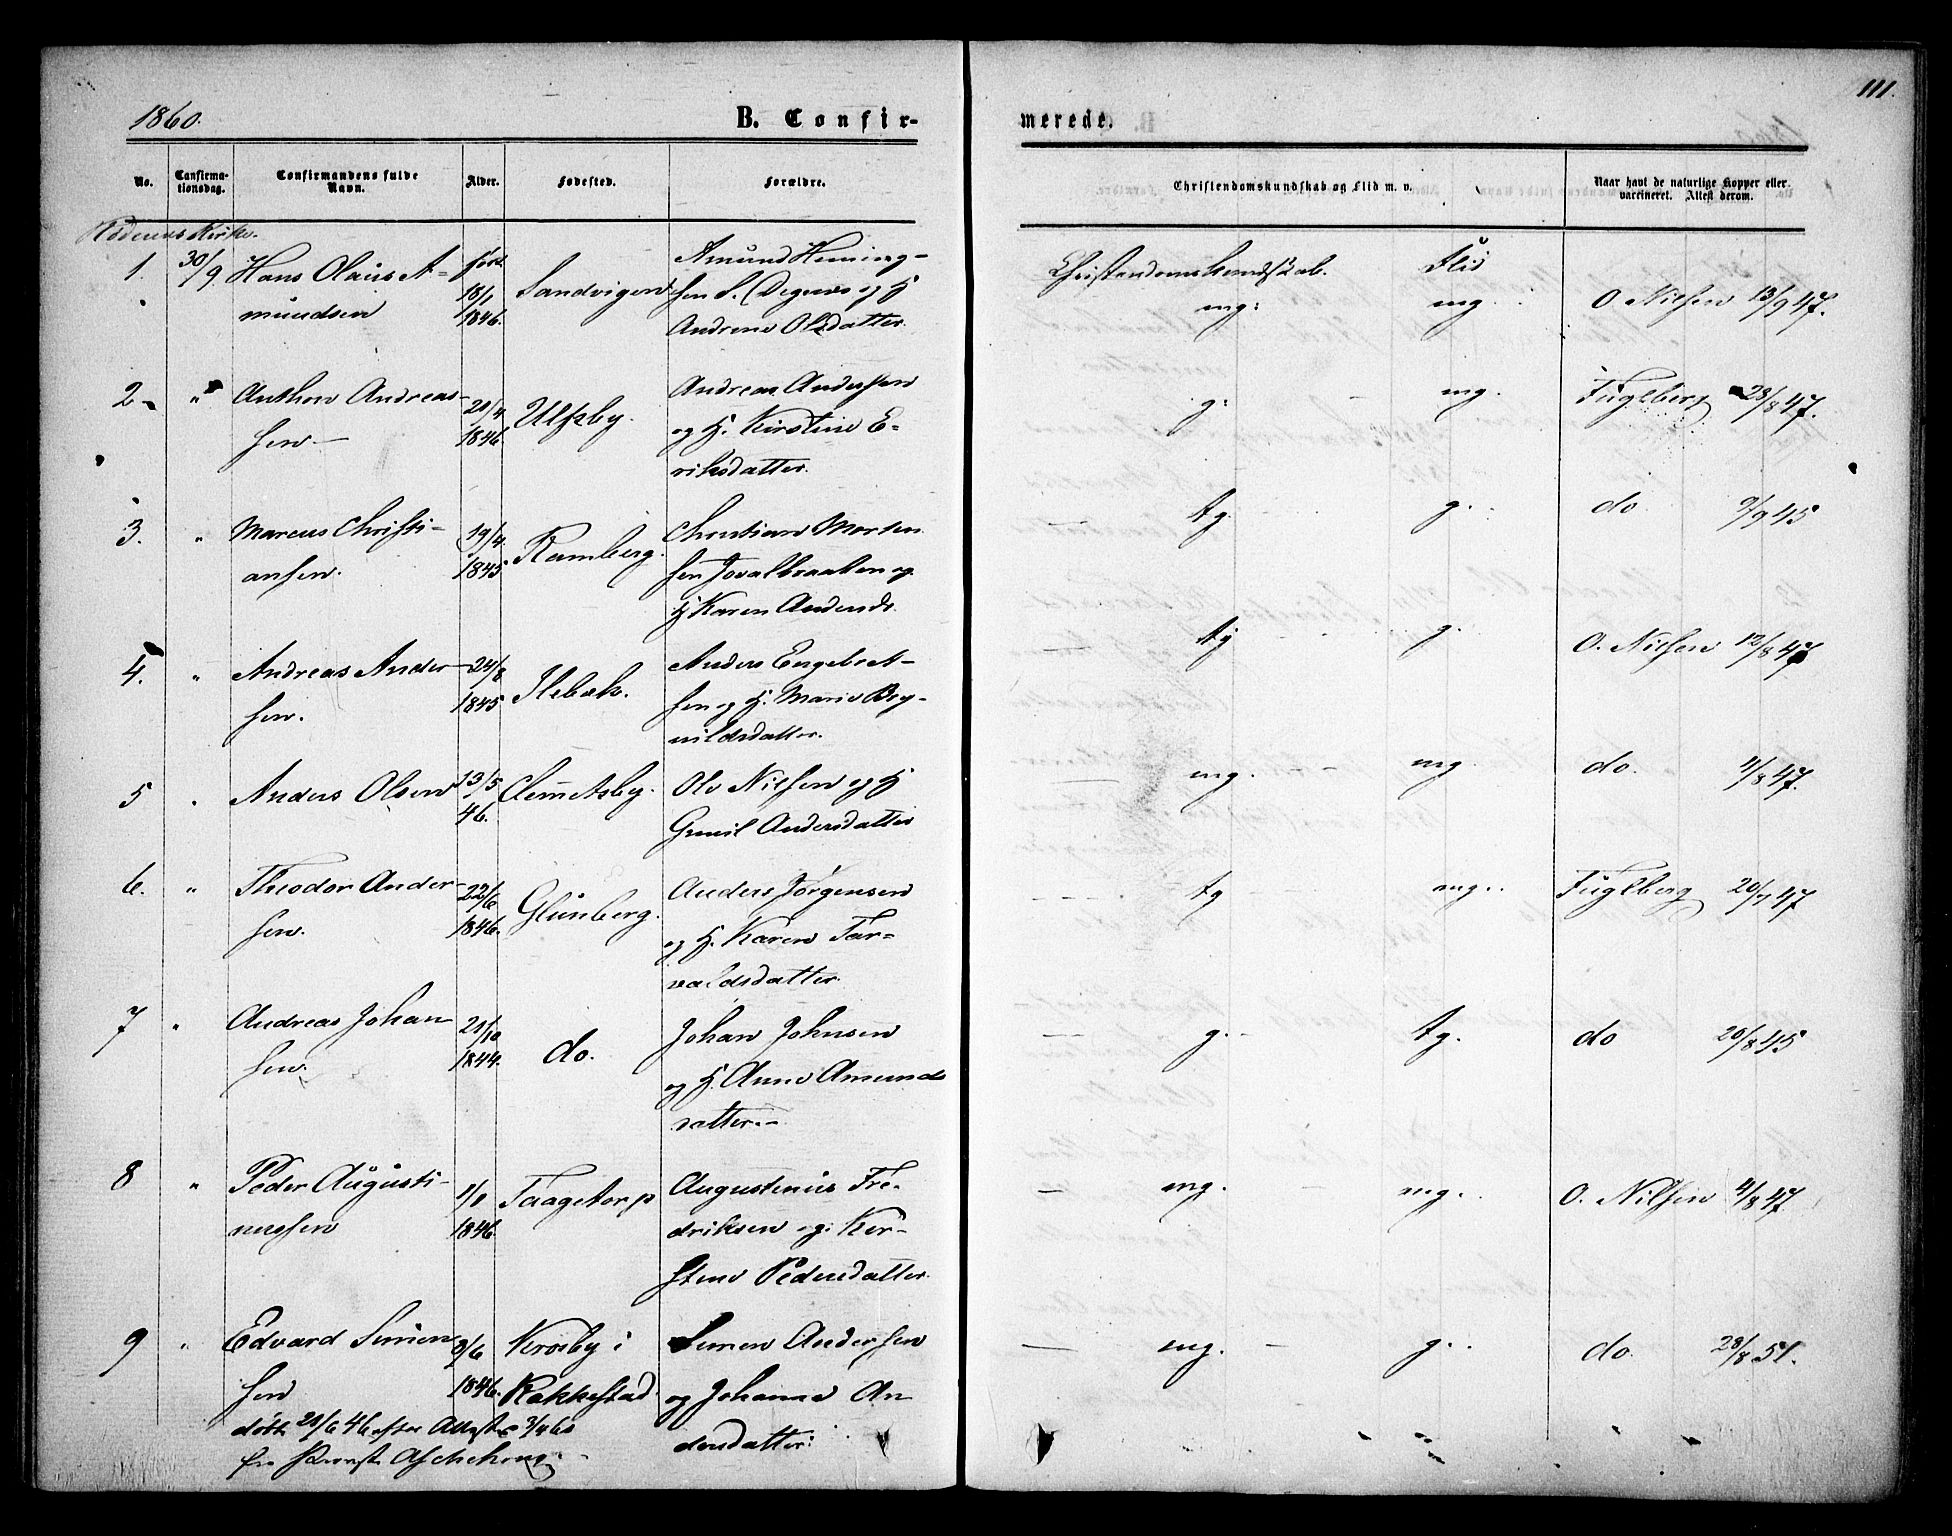 1860.
B. Confir-
merede.
111.
No.
Confirma-
tionsdag.
Confirmandens fulde
Navn.
Alder.
Fødested.
Forældre.
Christendomskundskab og Flid m. v.
Naar havt de naturlige Kopper eller
vaccineret. Attest derom.
Rødenes Kirke.
1. 30/9 Hans Olaus A-
mundsen
født
18/1
1846.
Sandvigen
Amund Heming-
sen S. og H
Andrene Olsdatter.
Christendomskundskab. Flid
mg: mg O. Nilsen 13/9 47.
2. " Anthon Andreas-
sen.
21/4
1846.
Ulfsby.
Andreas Andersen
og H. Kirstine E-
riksdatter.
g. mg. Fuglberg 28/8 47.
3. " Marcus Christi-
ansen.
19/4
1845
Ramberg.
Christian Morten
sen og
H Karen Andersdr.
tg. g. do 9/9 45
4. " Andreas Ander-
sen.
24/8
1845
Ilebæk.
Anders Engebret-
sen og H. Marie Bry-
nildsdatter.
tg g. O. Nilsen 12/8 47
5 " Anders Olsen
13/5
46.
Clemetsby.
Ole Nilsen og H
Gunil Andersdatter
mg. mg. do. 4/8 47.
6. " Theodor Ander-
sen.
22/6
1846.
Glimberg.
Anders Jørgensen
og H. Karen Tar-
valdsdatter.
tg mg. Fuglberg 20/7 47
7 " Andreas Johan-
sen.
21/10
1844.
do.
Johan Johnsen
og H. Anne Amunds
datter.
g. tg. do 20/8 45
8 " Peder Augusti-
nussen
1846.
Taagetorp
Augustinus Fre-
driksen og Ker-
stine Pedersdatter.
mg. mg. O. Nilsen 4/8 47
9 " Edvard Simen
sen
9/6
1846.
Krosby i
Rakkestad.
Simen Andersen
og Johanne An-
dersdatter.
mg. g. do. 28/8 51.
døbt 21/6 46 efter Attest 3/4 60
fra Provst Aschehoug.